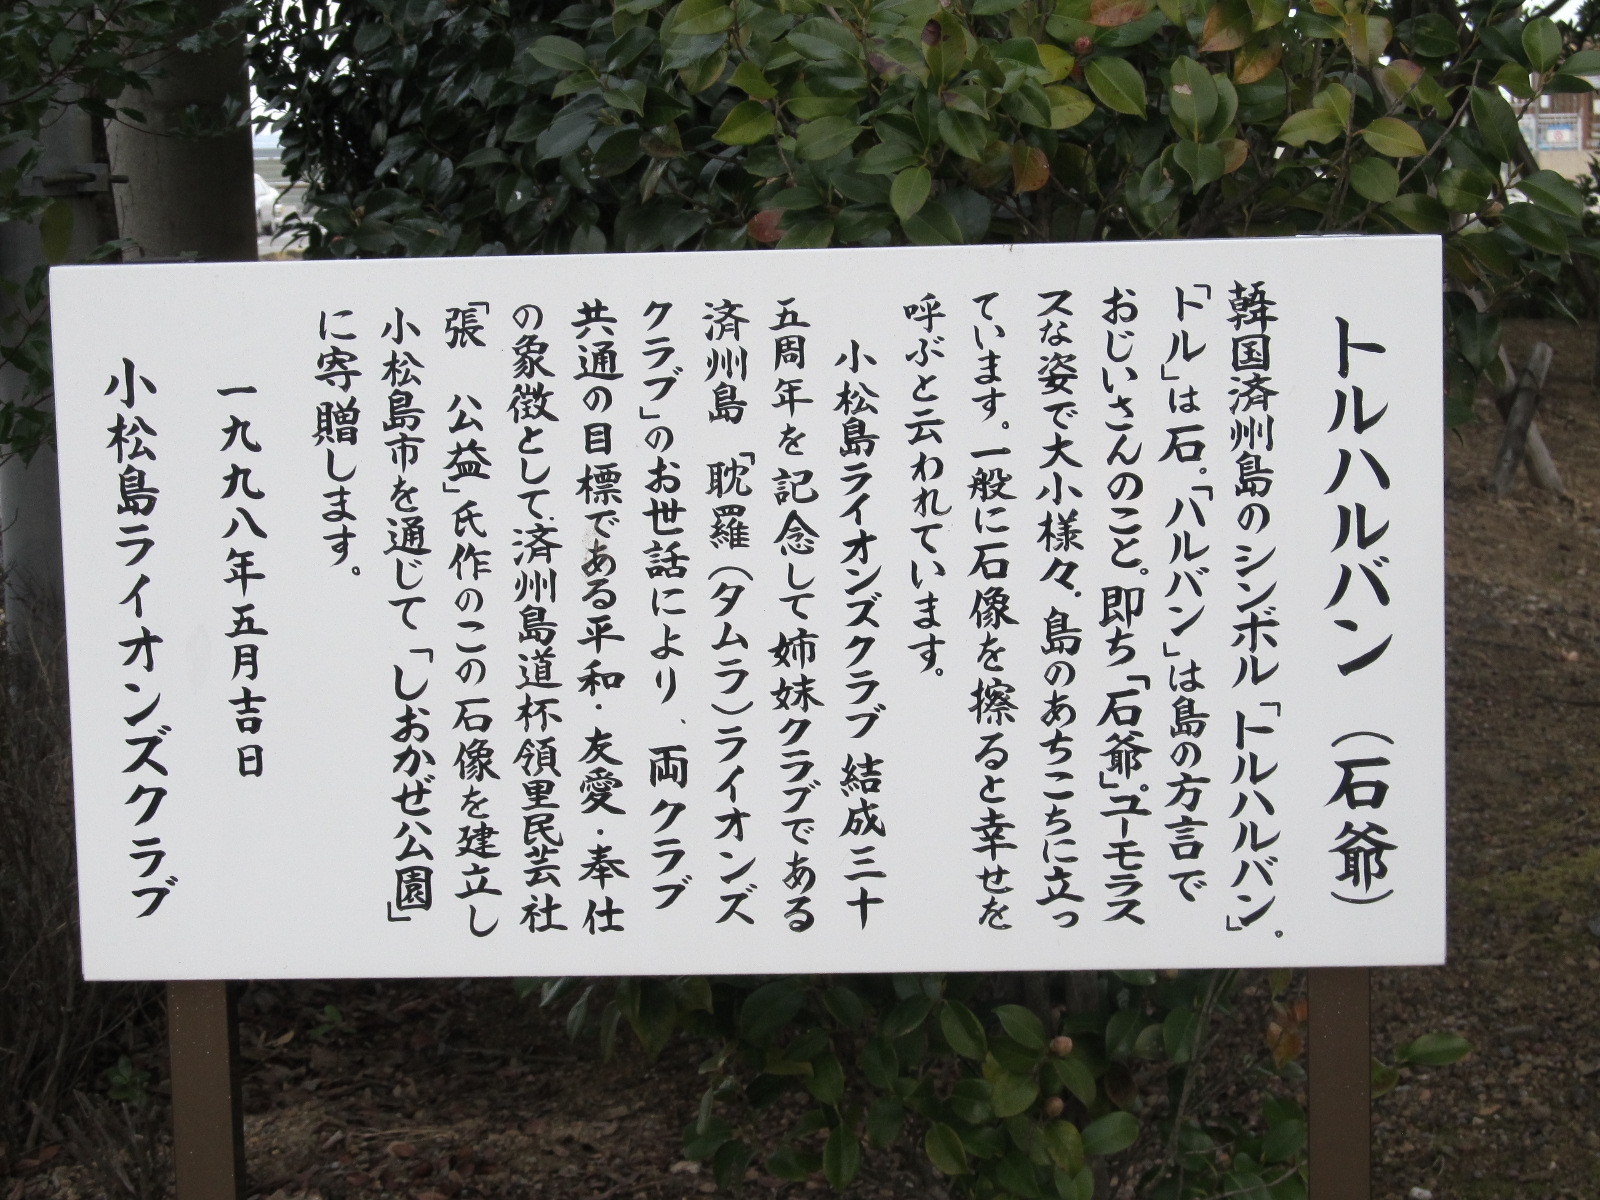 トルハルバン（石爺）
韓国済州島のシンボル「トルハルバン」。
「トル」は石。「ハルバン」は島の方言で
おじいさんのこと。即ち「石爺」。ユーモラス
スな姿で大小様々、島のあちこちに立っ
ています。一般に石像を擦ると幸せを
呼ぶと云われています。
小松島ライオンズクラブ結成三十
五周年を記念して姉妹クラブである
済州島「耽羅（タムラ）ライオンズ
クラブ」のお世話により、両クラブ
共通の目標である平和・友愛・奉仕
の象徴として、済州島道杯領里民芸社
「張 公益」氏作のこの石像を建立し
小松島市を通じて「しおかぜ公園」
に寄贈します。
一九九八年五月吉日
小松島ライオンズクラブ